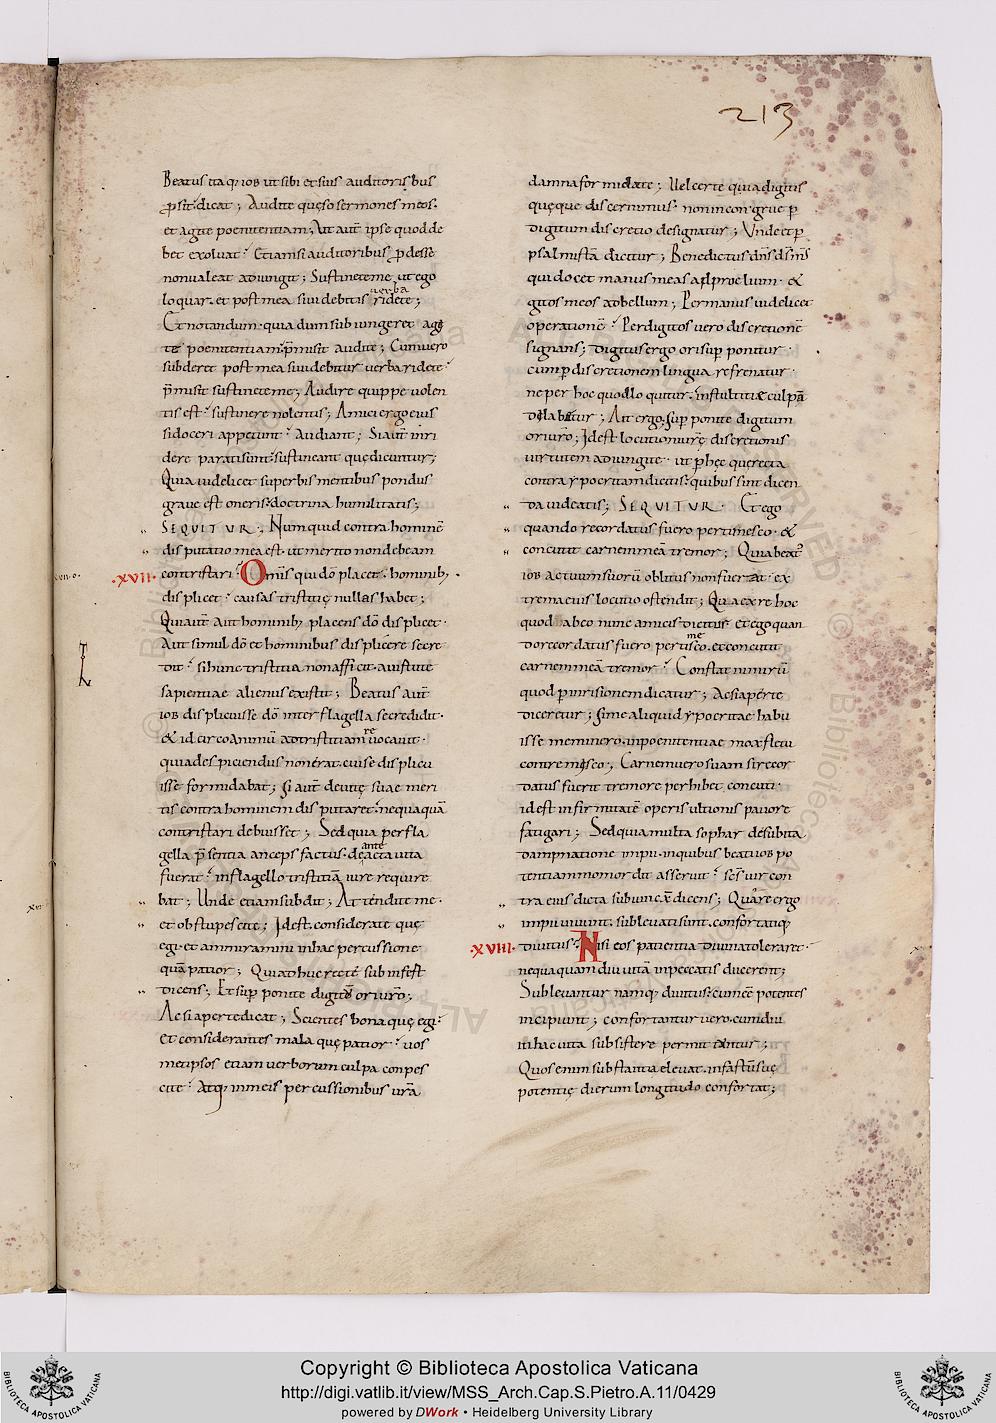 213
Beatus itaq; iob ut sibi et suis auditoribus
ꝓsit. dicat; Audite queso sermones meos.
et agite poenitentiam; Ut aut̄ ipse quod de
bet exoluat. Etiam si auditoribus ꝓdesse
non ualeat adiungit; Sustinete me ut ego
loquar. et post mea si uidebitis uerba ridete;
Et notandum. quia dum subiungeret agi
te poenitentiam. p̄misit audite; Cum uero
subderet post mea si uidebitur uerba ridete.
p̄misit sustinete me; Audire quippe uolen
tis est. sustinere nolentis; Amici ergo eius
si doceri appetunt. audiant; Si aut̄ inri
dere parati sunt. sustineant que dicuntur;
Quia uidelicet superbis mentibus pondus
graue est oneris. doctrina humilitatis;
SEQUITUR. Numquid contra hominē
disputatio mea est. ut merito non debeam
·XVII· contristari. Omis qui dō placet. hominib;
displicet. causas tristitię nullas habet;
Qui aut̄ aut hominib; placens dō displicet.
Aut simul dō et hominibus displicere se cre
dit. si hunc tristitia non afficit. a uirtute
sapientiae alienus existit; Beatus aut̄
iob displicuisse dō inter flagella se credidit.
& idcirco animū ad tristitiam reuocauit.
quia despiciendus non erat. cui se displicu
isse formidabat; Si aut̄ de uitę suae meri
tis contra hominem disputaret. nequaquā
contristari debuisset; Sed quia per fla
gella p̄sentia anceps factus. de ante acta uita
fuerat. in flagello tristitiā iure require
bat; Unde etiam subdit; Attendite me.
et obstupescite; Idest. considerate que
egi. et ammiramini in hac percussione
quā patior; Qui adhuc recte subinfert
dicens; Et sup̄ ponite digitū ori urō;
Ac si aperte dicat; Scientes bona que egi.
et considerantes mala que patior. uos
metipsos etiam uerborum culpa compes
cite. Atq; in meis percussionibus urā
damna formidate; Uel certe quia digitis
queque discernimus. non incongrue p
digitum discretio designatur; Unde et p
psalmistā dicitur; Benedictus dn̄s ds̄ m̄s
qui docet manus meas ad proelium. &
gitos meos ad bellum; Per manus uidelicet
operationē. Per digitos uero discretionē
signans; Digitus ergo ori sup̄ponitur.
cum p discretionem lingua refrenatur.
ne per hoc quod loquitur. in stultitiae culpā
delabatur; Ait ergo. sup̄ponite digitum
ori urō; Idest. locutioni urę discretionis
uirtutem adiungite. ut p hęc que recta
contra ypocritam dicitis. quibus sint dicen
da uideatis; SEQUITUR. Et ego
quando recordatus fuero pertimesco. &
concutit carnem meā tremor; Quia beat'
iob actuum suorū oblitus non fuerat. ex
trema eius locutio ostendit; Quae ex re hoc
quod ab eo nunc amicis dicitur. et ego quan
do recordatus fuero pertimesco. et concutit
carnem meā tremor. Constat nimirū
quod p inrisionem dicatur; Ac si aperte
diceretur; Si me aliquid ypocritae habu
isse meminero. in poenitentiae mox fletu
contremisco; Carnem uero suam si recor
datus fuerit tremore perhibet concuti.
idest infirmitatē operis ultionis pauore
fatigari; Sed quia multa sophar de subita
dampnatione impii. in quibus beati iob po
tentiam momordit asseruit. scs̄ uir con
tra eius dicta subiunexit dicens; Quare ergo
impii uiuunt. subleuati sunt. confortatiq;
·XVIII· diuitiis. Nisi eos patientia diuina toleraret.
nequaquam diu uitā in peccatis ducerent;
Subleuantur namq; diuitiis. cum ee potentes
incipiunt; confortantur uero. cum diu
in hac uita subsistere permittuntur;
Quos enim substantia eleuat. in fastū suę
potentię dierum longitudo confortat;
Copyright © Biblioteca Apostolica Vaticana
http://digi.vatlib.it/view/MSS_Arch.Cap.S.Pietro.A.11/0429
powered by DWork • Heidelberg University Library
BIBLIOTECA APOSTOLICA VATICANA
BIBLIOTECA APOSTOLICA VATICANA